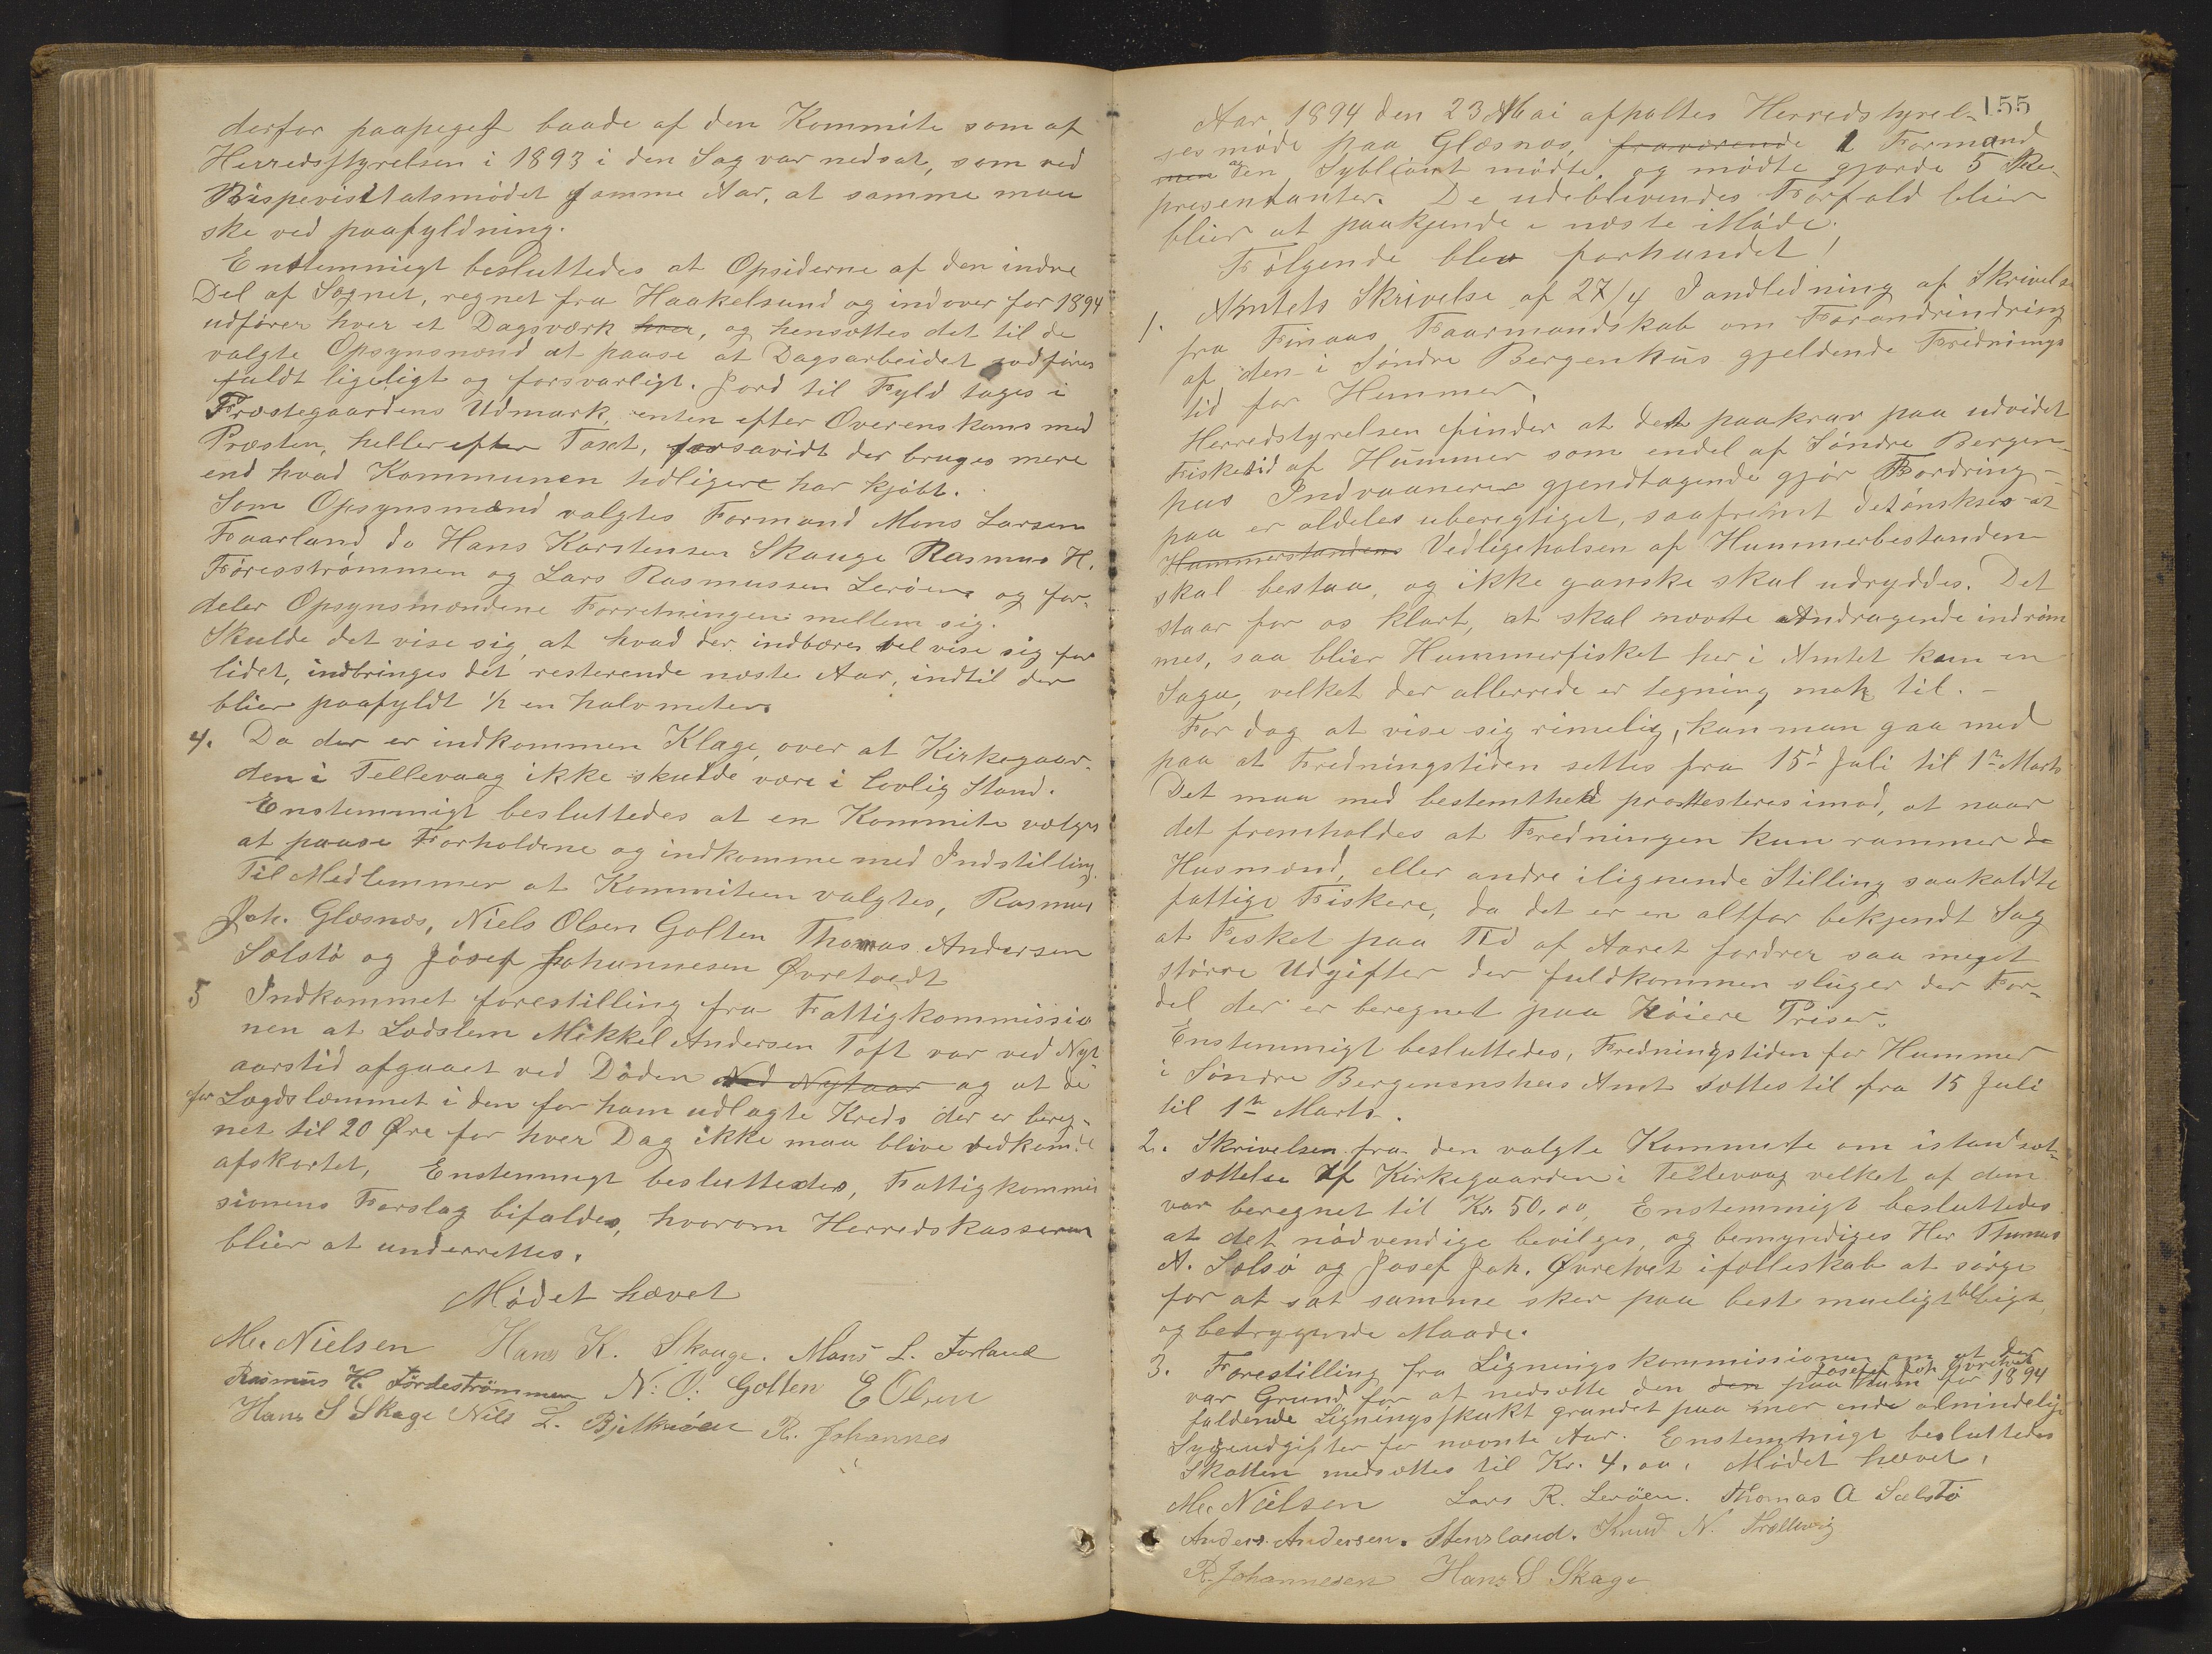 derfor paapeget baade af den Kommite som af
Herredsstyrelsen i 1893 i den Sag var nedsat, som ved
Bispevisitatsmödet samme Aar, at samme maa
ske ved paafyldning.
Enstemmigt besluttedes at Opsiderne af den indre
Del af Sognet, regnet fra Haakelsund og indover for 1894
udförer hver et Dagsværk hver, og hensættes det til de
valgte Opsynsmænd at paase at Dagsarbeidet rodföres
fuldt ligeligt og forsvarligt. Jord til Fyld tages i
Præstegaardens Udmark, enten efter Overenskoms med
Præsten, heller efter Taxt, forsavidt der bruges mere
end hvad Kommunen tidligere har kjöbt.
Som Opsynsmænd valgtes Formand Mons Larsen
Faarland do Hans Karstensen Skauge Rasmus H.
Föresströmmen og Lars Rasmussen Leröen og for-
deler Opsynsmændene Forretningen mellem sig.
Skulde det vise sig, at hvad der indbæres vel vise sig for
lidet, indbringes det resterende næste Aar, indtil der
blier paafyldt ½ en halv meter.
4. Da der er indkommen Klage, over at Kirkegaar-
den i Tellevaag ikke skulde være i lovlig Stand.
Enstemmigt besluttedes at en Kommite vælges
at paase Forholdene og indkomme med Indstilling.
Til Medlemmer at Kommiteen valgtes, Rasmus
Joh. Glæsnæs, Niels Olsen Golten Thomas Andersen
Solstö og Jósef Johannesen Øvretvedt
5 Indkommet forestilling fra Fattigkommissio
nen at Lodslem Mikkel Andersen Toft var ved Nyt-
aarstid afgaaet ved Döden Ved Nytaar og at de
for Lægdslæmmet i den for ham udlagte Kreds der er bereg-
net til 20 Øre for hver Dag ikke maa blive vedkom:de
afskortet, Enstemmigt besluttedes, Fattigkommis
sionens Forslag bifaldes, hvorom Herredskasseren
blier at underrettes.
Mödet hævet
M. Nielsen Hans K. Skauge. Mons L. Forland
Rasmus H. Fördeströmmen N: O: Golten E Olsen
Hans S Skage Nils L. Bjelkeröen R. Johannes
155
Aar 1894 den 23 Mai afholtes Herredstyrel-
sesmöde paa Glæsnæs, fraværende 1 Formand
men og den Sybliant mödte, og mödte gjorde 5 Re-
presentanter. De udeblivendes Forfald blier
blier at paakjende i næste Möde.
Fölgende blev forhandet!
1. Amtets Skrivelse af 27/4 Iandledning af Skrivelse
fra Finaas Faarmandskab om Forandrindring
af den i Söndre Bergenhus gjeldende Frednings
tid for Hummer.
Herredstyrelsen finder at det paakrav paa udvidet
Fisketid af Hummer som endel af Söndre Bergen-
hus Indvaanere gjendtagende gjör Fordring-
paa er aldeles uberegtiget, saafremt det önskes at
Hummerstandens Vedligeholsen af Hummerbestanden
skal bestaa, og ikke ganske skal udryddes. Det
staar for os klart, at skal nævnte Andragende indröm
mes, saa blier Hummerfisket her i Amtet kun en
Saga, velket der allerrede er tegning nok til. -
For dog at vise sig rimelig, kan man gaa med
paa at Fredningstiden settes fra 15d Juli til 1ste Marts
Det maa med bestemthed prottesteres imod, at naar
det fremholdes at Fredningen kun rammer de
Husmænd, eller andre ilignende Stilling saakaldte
fattige Fiskere, da det er en altfor bekjendt Sag
at Fisket paa Tid af Aaret fordrer saa meget
större Udgifter der fuldkommen sluger der For-
del, der er beregnet paa Höiere Priser.
Enstemmigt besluttedes, Fredningstiden for Hummer
i Söndre Bergenenshus Amt sættes til fra 15 Juli
til 1ste Marts.
2. Skrivelsen fra den valgte Kommite om istandsæt-
sættelse af Kirkegaarden i Tellevaag velket af dem
var beregnet til Kr. 50,00, Enstemmigt besluttedes
at det nödvendige bevilges, og bemyndiges Her Thomas
A. Solsö og Josef Joh. Øvretvet ifælleskab at sörge
for at sat samme sker paa best mueligt billigt
og betryggende Maade.
3. Forestilling fra Ligningskommissionen om at der
var Grund for at nedsætte den den paa Josef Joh. Øvretvet ham for 1894
faldende Ligningsskakt grundet paa mer ende almindelige
Sygeudgifter for nævnte Aar. Enstemmigt besluttedes
Skatten nedsættes til Kr. 4.00. Mödet hævet.
M. Nielsen Lars R. Leröen. Thomas A Sælstö
Anders Andersen. Stensland. Knud N. Trællevig
R. Johannesen Hans S Skage